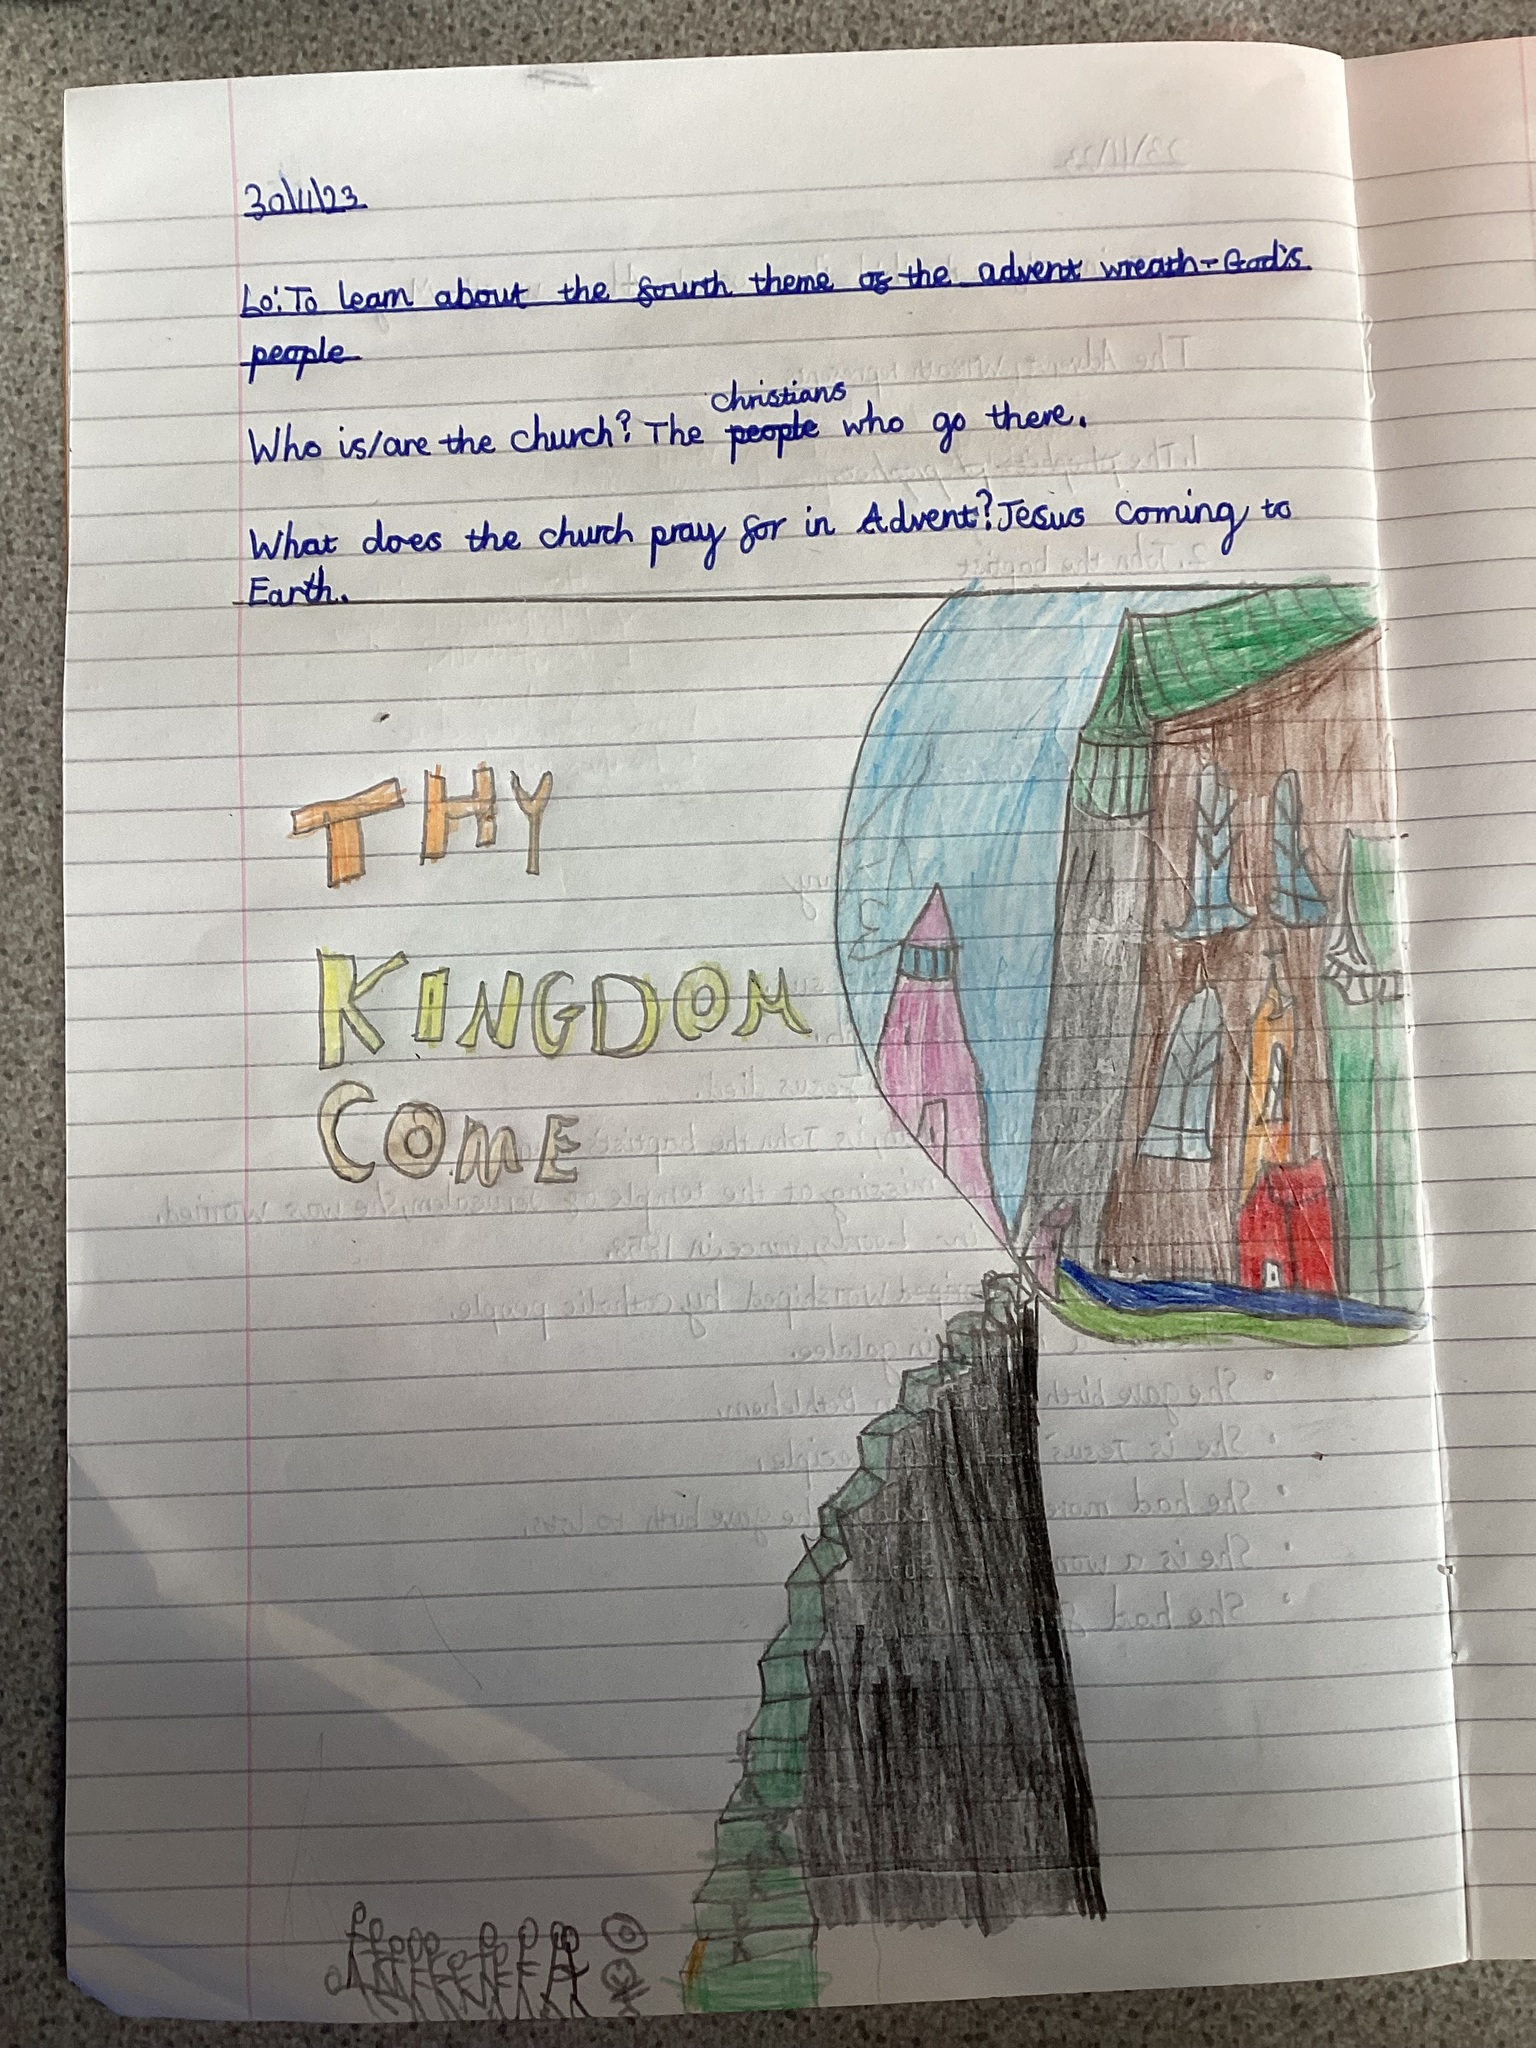 30/11/23
Lo: To learn about the fourth theme of the advent wreath - God's
people
christians
Who is/are the church? The people who go there.
What does the church pray for in Advent? Jesus coming to
Earth.
THY
KINGDOM
COME